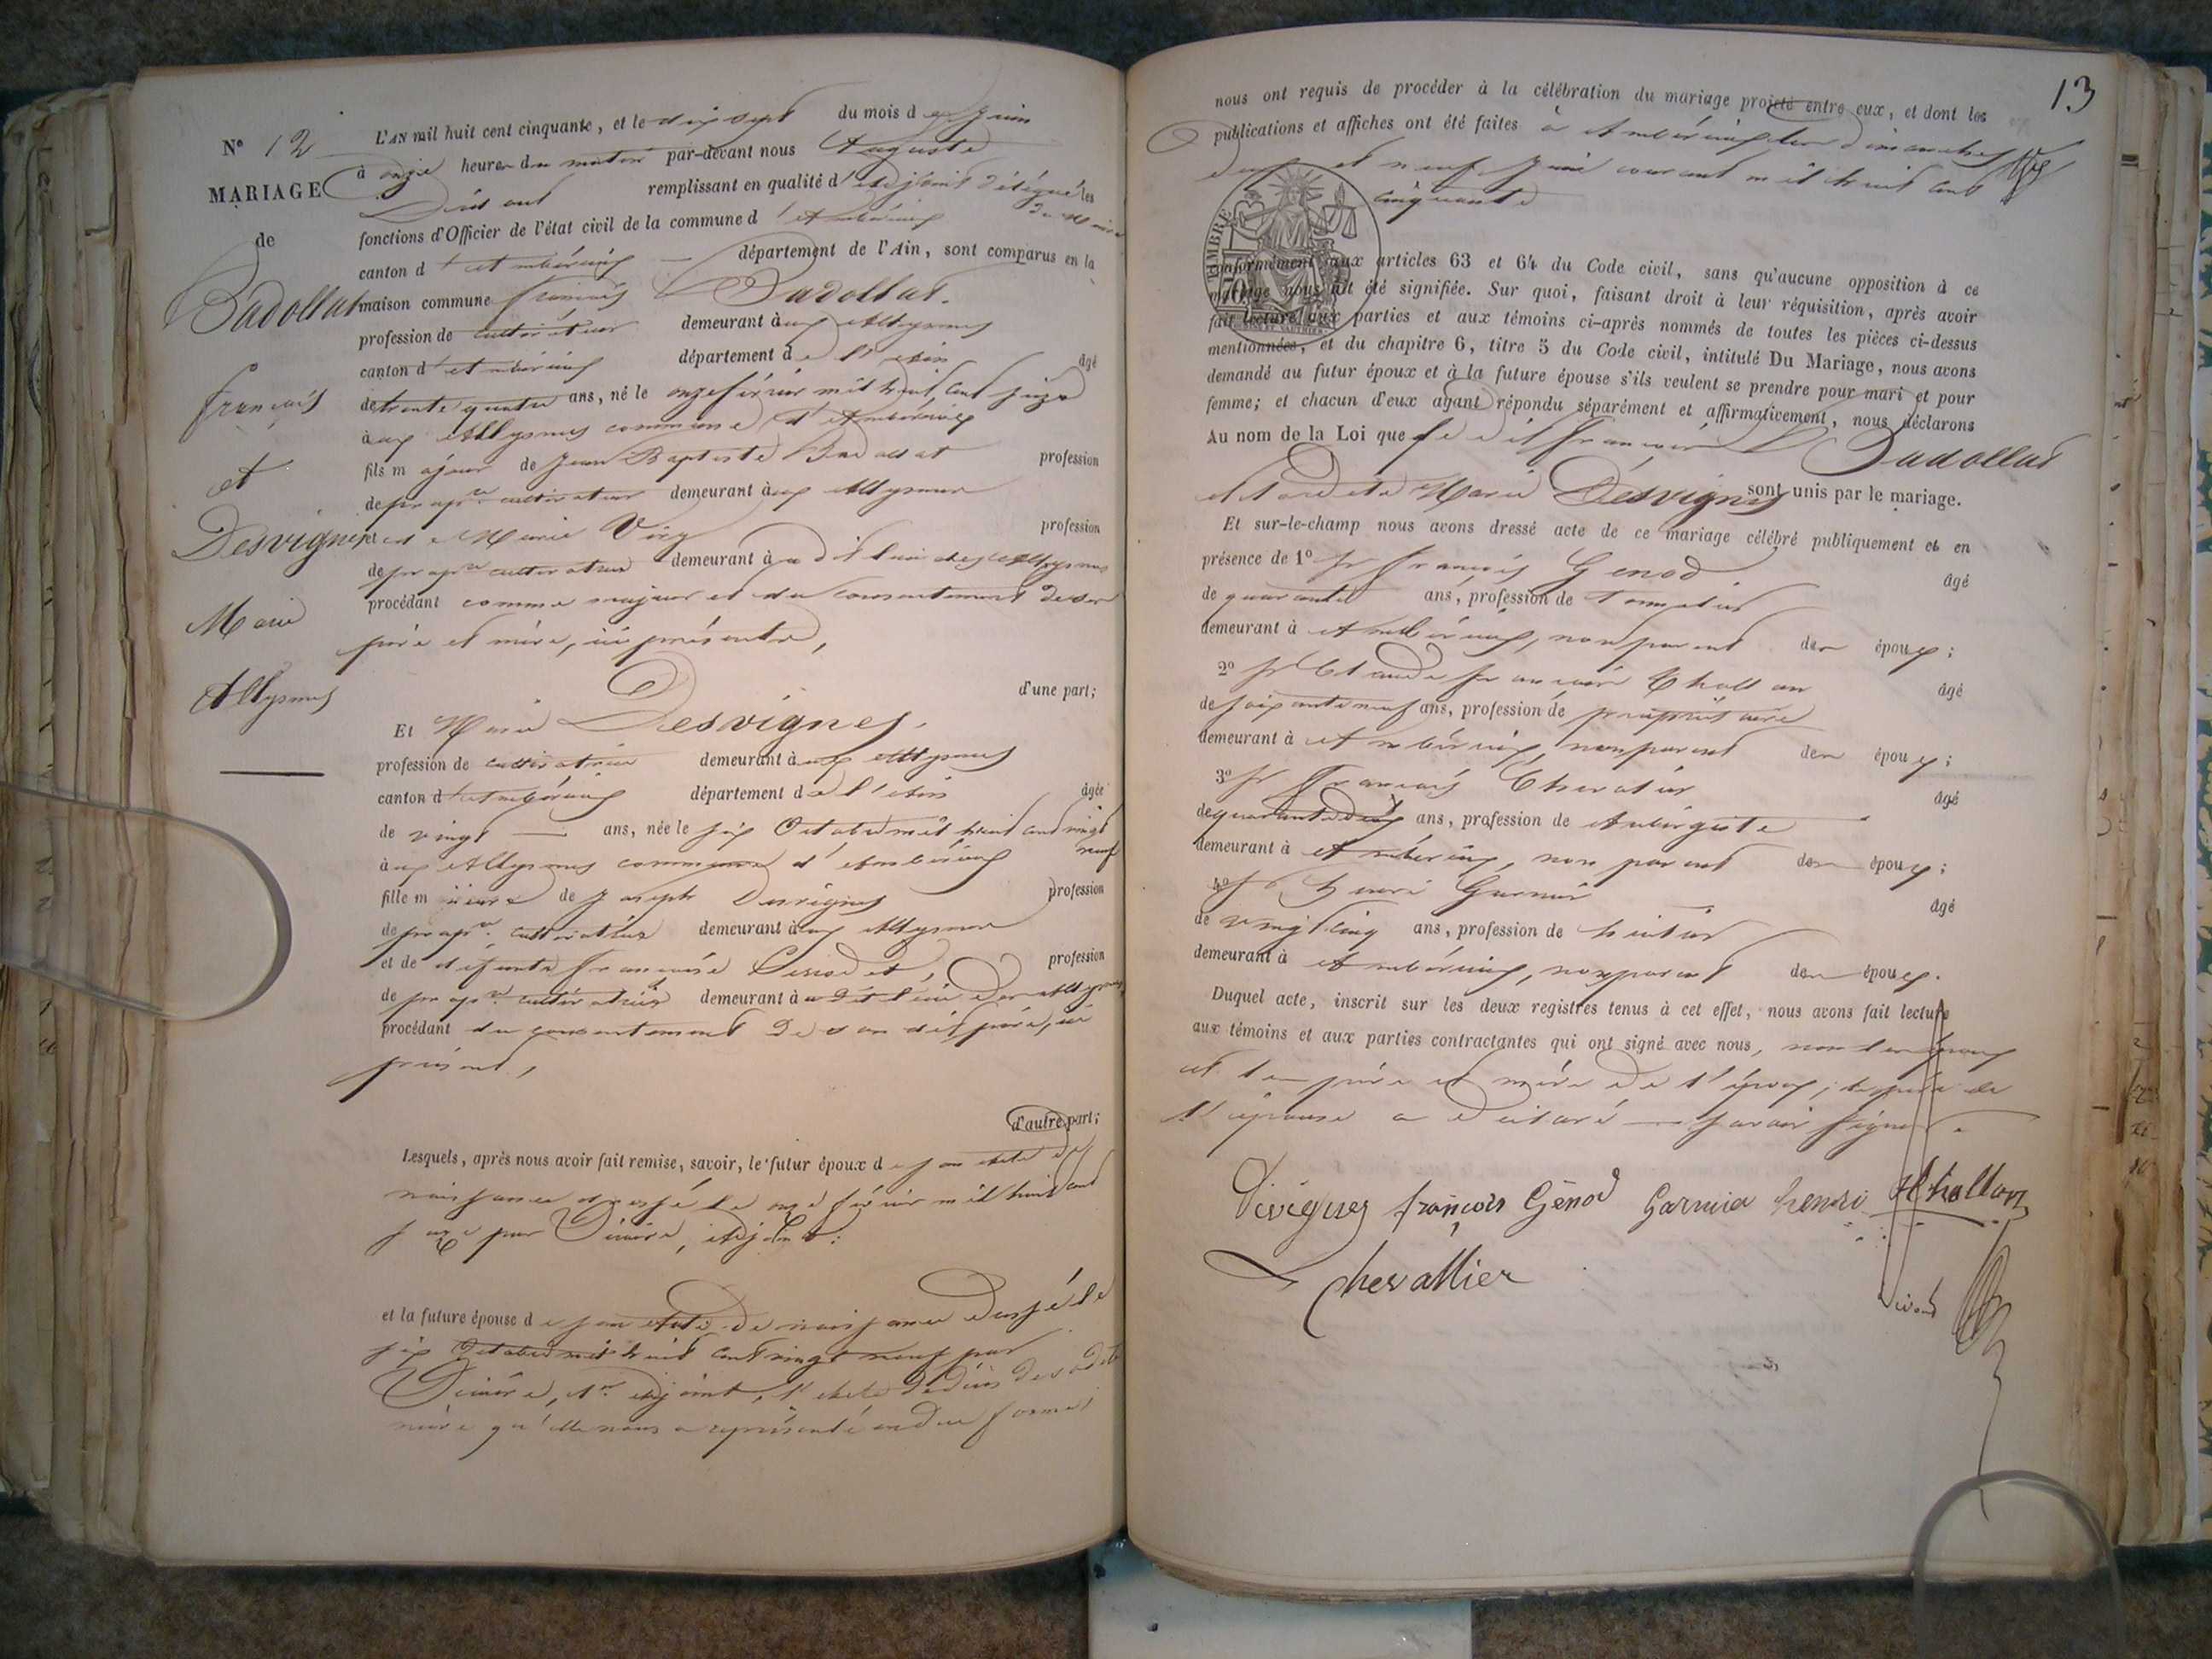 N° 12
MARIAGE
de
Badollat
françois
et
Desvignes
Marie
Allysmes
L'AN mil huit cent cinquante, et le dix sept du mois de Juin
à onze heures du matin par-devant nous Auguste
remplissant en qualité d'adjoint délégué les
du Maire
fonctions d'Officier de l'état civil de la commune d'Ambérieux
canton d'Ambérieux département de l'Ain, sont comparus en la
maison commune François Badollat.
profession de cultivateur demeurant aux Allysmes
canton d'Ambérieux département de l'Ain âgé
de trente quatre ans, né le onze février mil huit cent seize
aux Allysmes commune d'Ambérieux
fils majeur de Jean Baptiste Badollat profession
de propre cultivateur demeurant aux Allysmes
et de Marie profession
de propre cultivatrice demeurant à dit lieu des Allysmes
procédant comme majeur et du consentement de ses
père et mère, ici présents,
d'une part;
Et Marie Desvignes.
profession de cultivatrice demeurant aux Allysmes
canton d'Ambérieux département de l'Ain âgée
de vingt ans, née le six Octobre mil huit cent vingt
neuf
aux Allysmes commune d'Ambérieux
fille mineure de Joseph Desvignes profession
de propre cultivateur demeurant aux Allysmes
et de défunte Françoise profession
de propre cultivatrice demeurant au dit lieu des Allysmes
procédant du consentement de son dit père, ici
présent,
d'autre part;
Lesquels, après nous avoir fait remise, savoir, le futur époux de son acte de
naissance dressé le onze février mil huit cent
seize par adjoint;
et la future épouse de son acte de naissance dressé le
six Octobre mil huit cent vingt neuf par
1er adjoint, l'acte de décès de sa dite
mère qu'elle nous a représenté en due forme,
13
nous ont requis de procéder à la célébration du mariage projeté entre eux, et dont les
publications et affiches ont été faites à Ambérieux les dimanches
deux et neuf Juin courant mil huit cent
cinquante
TIMBRE
conformément aux articles 63 et 64 du Code civil, sans qu'aucune opposition à ce
mariage nous ait été signifiée. Sur quoi, faisant droit à leur réquisition, après avoir
fait lecture aux parties et aux témoins ci-après nommés de toutes les pièces ci-dessus
mentionnées, et du chapitre 6, titre 5 du Code civil, intitulé Du Mariage, nous avons
demandé au futur époux et à la future épouse s'ils veulent se prendre pour mari et pour
femme; et chacun d'eux ayant répondu séparément et affirmativement, nous déclarons
Au nom de la Loi que le dit François Badollat
et la dite Marie Desvignes sont unis par le mariage.
Et sur-le-champ nous avons dressé acte de ce mariage célébré publiquement et en
présence de 1° Sr François Genod âgé
de quarante ans, profession de
demeurant à Ambérieux, non parent des époux;
2° Sr Claude François Chollan âgé
de soixante neuf ans, profession de propriétaire
demeurant à Ambérieux, non parent des époux;
3° Sr François Chevalier âgé
de quarante deux ans, profession de Aubergiste
demeurant à Ambérieux, non parent des époux;
4° Sr henri Garnier âgé
de vingt cinq ans, profession de
demeurant à Ambérieux, non parent des époux.
Duquel acte, inscrit sur les deux registres tenus à cet effet, nous avons fait lecture
aux témoins et aux parties contractantes qui ont signé avec nous, non les époux
et les père et mère de l'époux; le père de
l'épouse a déclaré savoir signer.
Devignes françois Génod Garnier henri Chollan
Chevallier